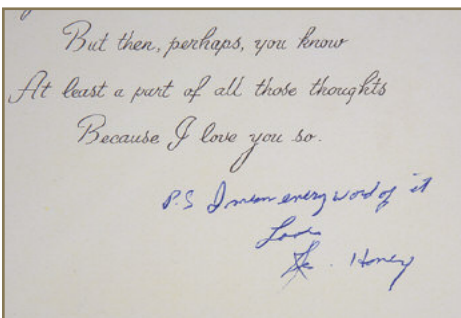 But then, perhaps, you know
At least a part of all those thoughts
Because I love you so.
P.S I mean every word of it
Love
Honey